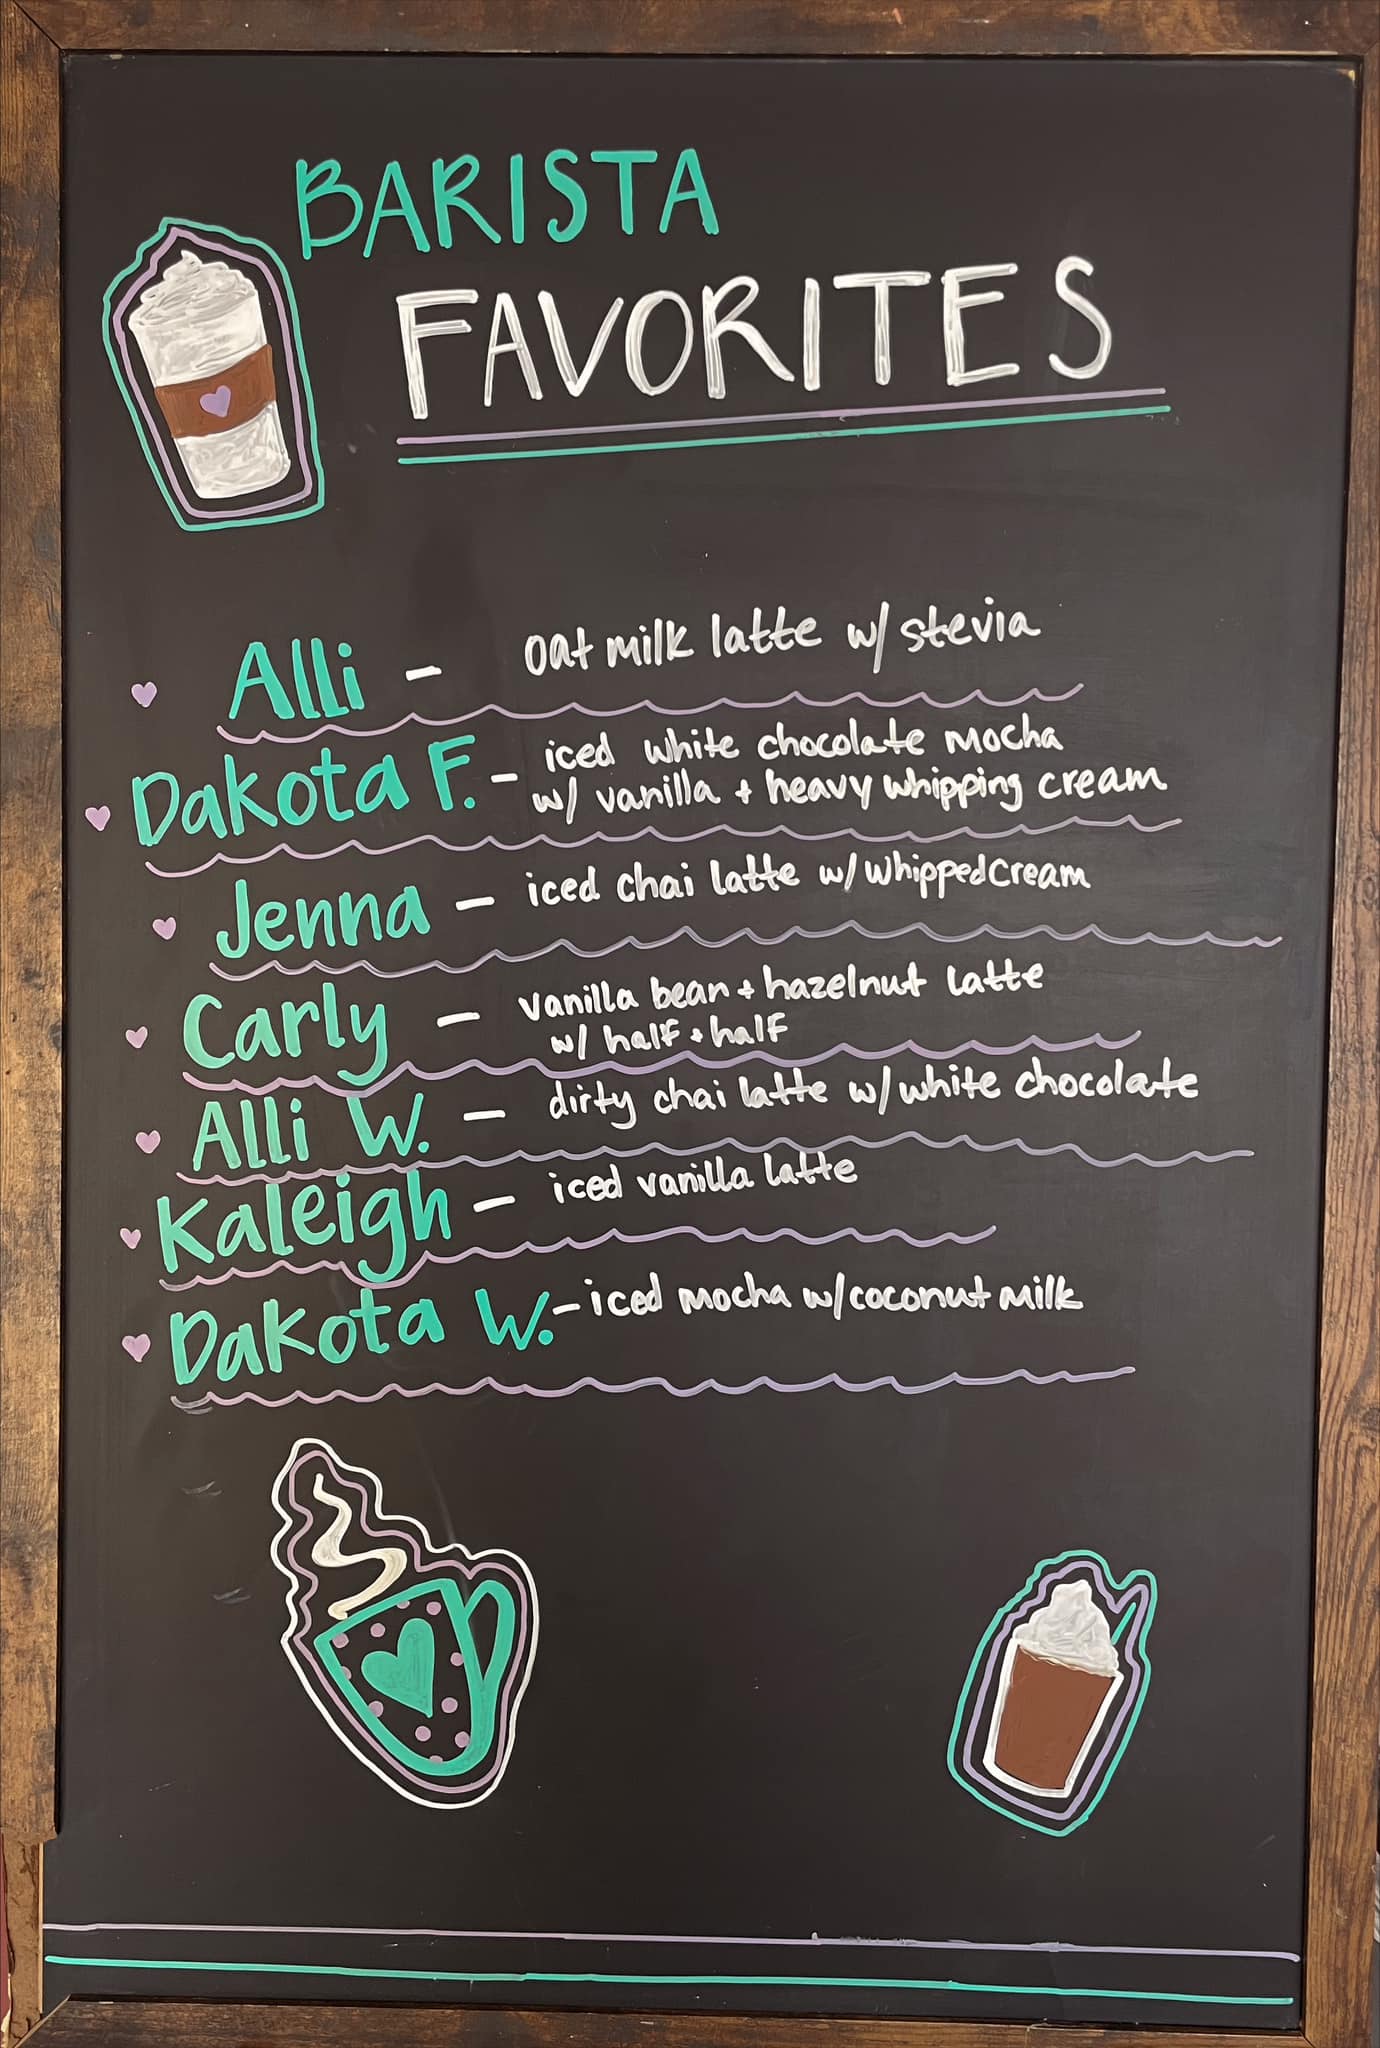 BARISTA
FAVORITES
Alli - oat milk latte w/ stevia
Dakota F. - iced white chocolate mocha
w/ vanilla + heavy whipping cream
Jenna - iced chai latte w/ whipped cream
Carly - vanilla bean + hazelnut latte
w/ half + half
Alli W. - dirty chai latte w/ white chocolate
Kaleigh - iced vanilla latte
Dakota W. - iced mocha w/ coconut milk